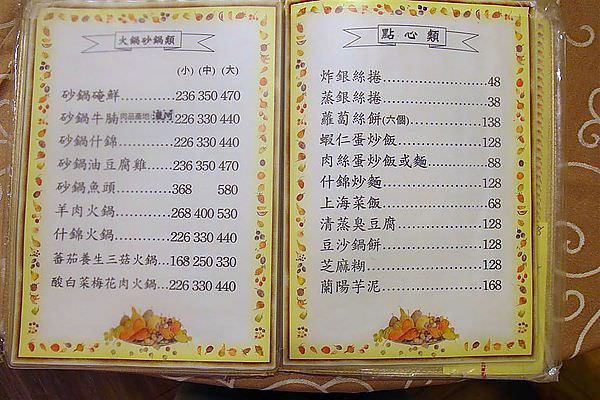 火鍋砂鍋類
(小) (中) (大)
砂鍋醃鮮.........236 350 470
砂鍋牛腩 226 330 440
砂鍋什錦.........226 330 440
砂鍋油豆腐雞...236 350 470
砂鍋魚頭 368 580
羊肉火鍋.........268 400 530
什錦火鍋.........226 330 440
蕃茄養生三菇火鍋...168 250 330
酸白菜梅花肉火鍋...226 330 440
點心類
炸銀絲捲..................48
蒸銀絲捲..................38
蘿蔔絲餅(六個)............138
蝦仁蛋炒飯...............128
肉絲蛋炒飯或麵............88
什錦炒麵..................128
上海菜飯..................68
清蒸臭豆腐...............128
豆沙鍋餅..................128
芝麻糊.....................128
蘭陽芋泥..................168